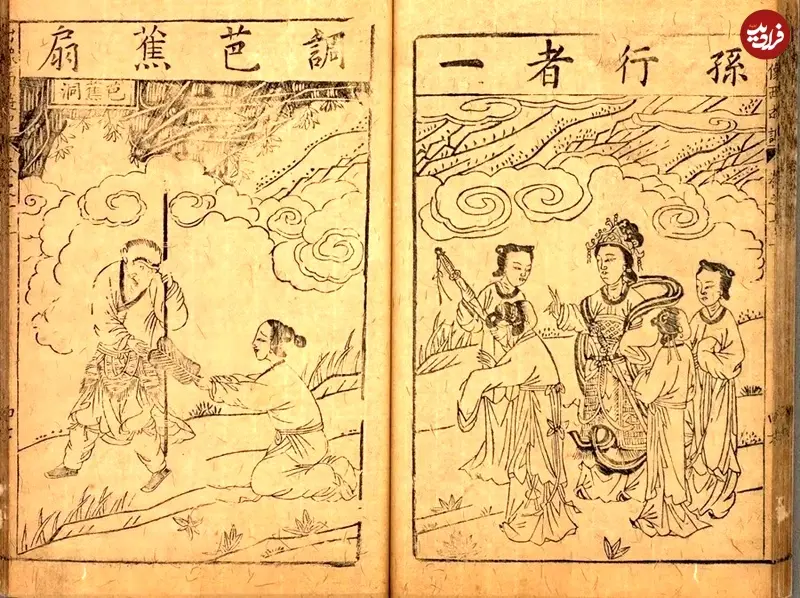 孫行者一
調芭蕉扇
芭蕉洞
فرادید